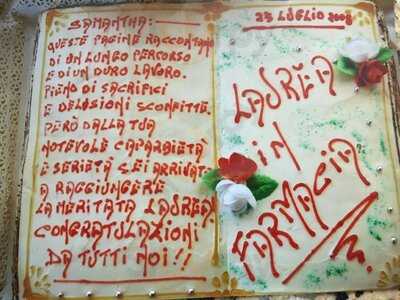 SAMANTHA:
QUESTE PAGINE RACCONTANO
DI UN LUNGO PERCORSO
E DI UN DURO LAVORO.
PIENO DI SACRIFICI
E DELUSIONI SCONFITTE.
PERÒ DALLA TUA
NOTEVOLE CAPARBIETÀ
E SERIETÀ SEI ARRIVATA
A RAGGIUNGERE
LA MERITATA LAUREA
CONGRATULAZIONI
DA TUTTI NOI!!
LUGLIO
LAUREA
IN
FARMACIA